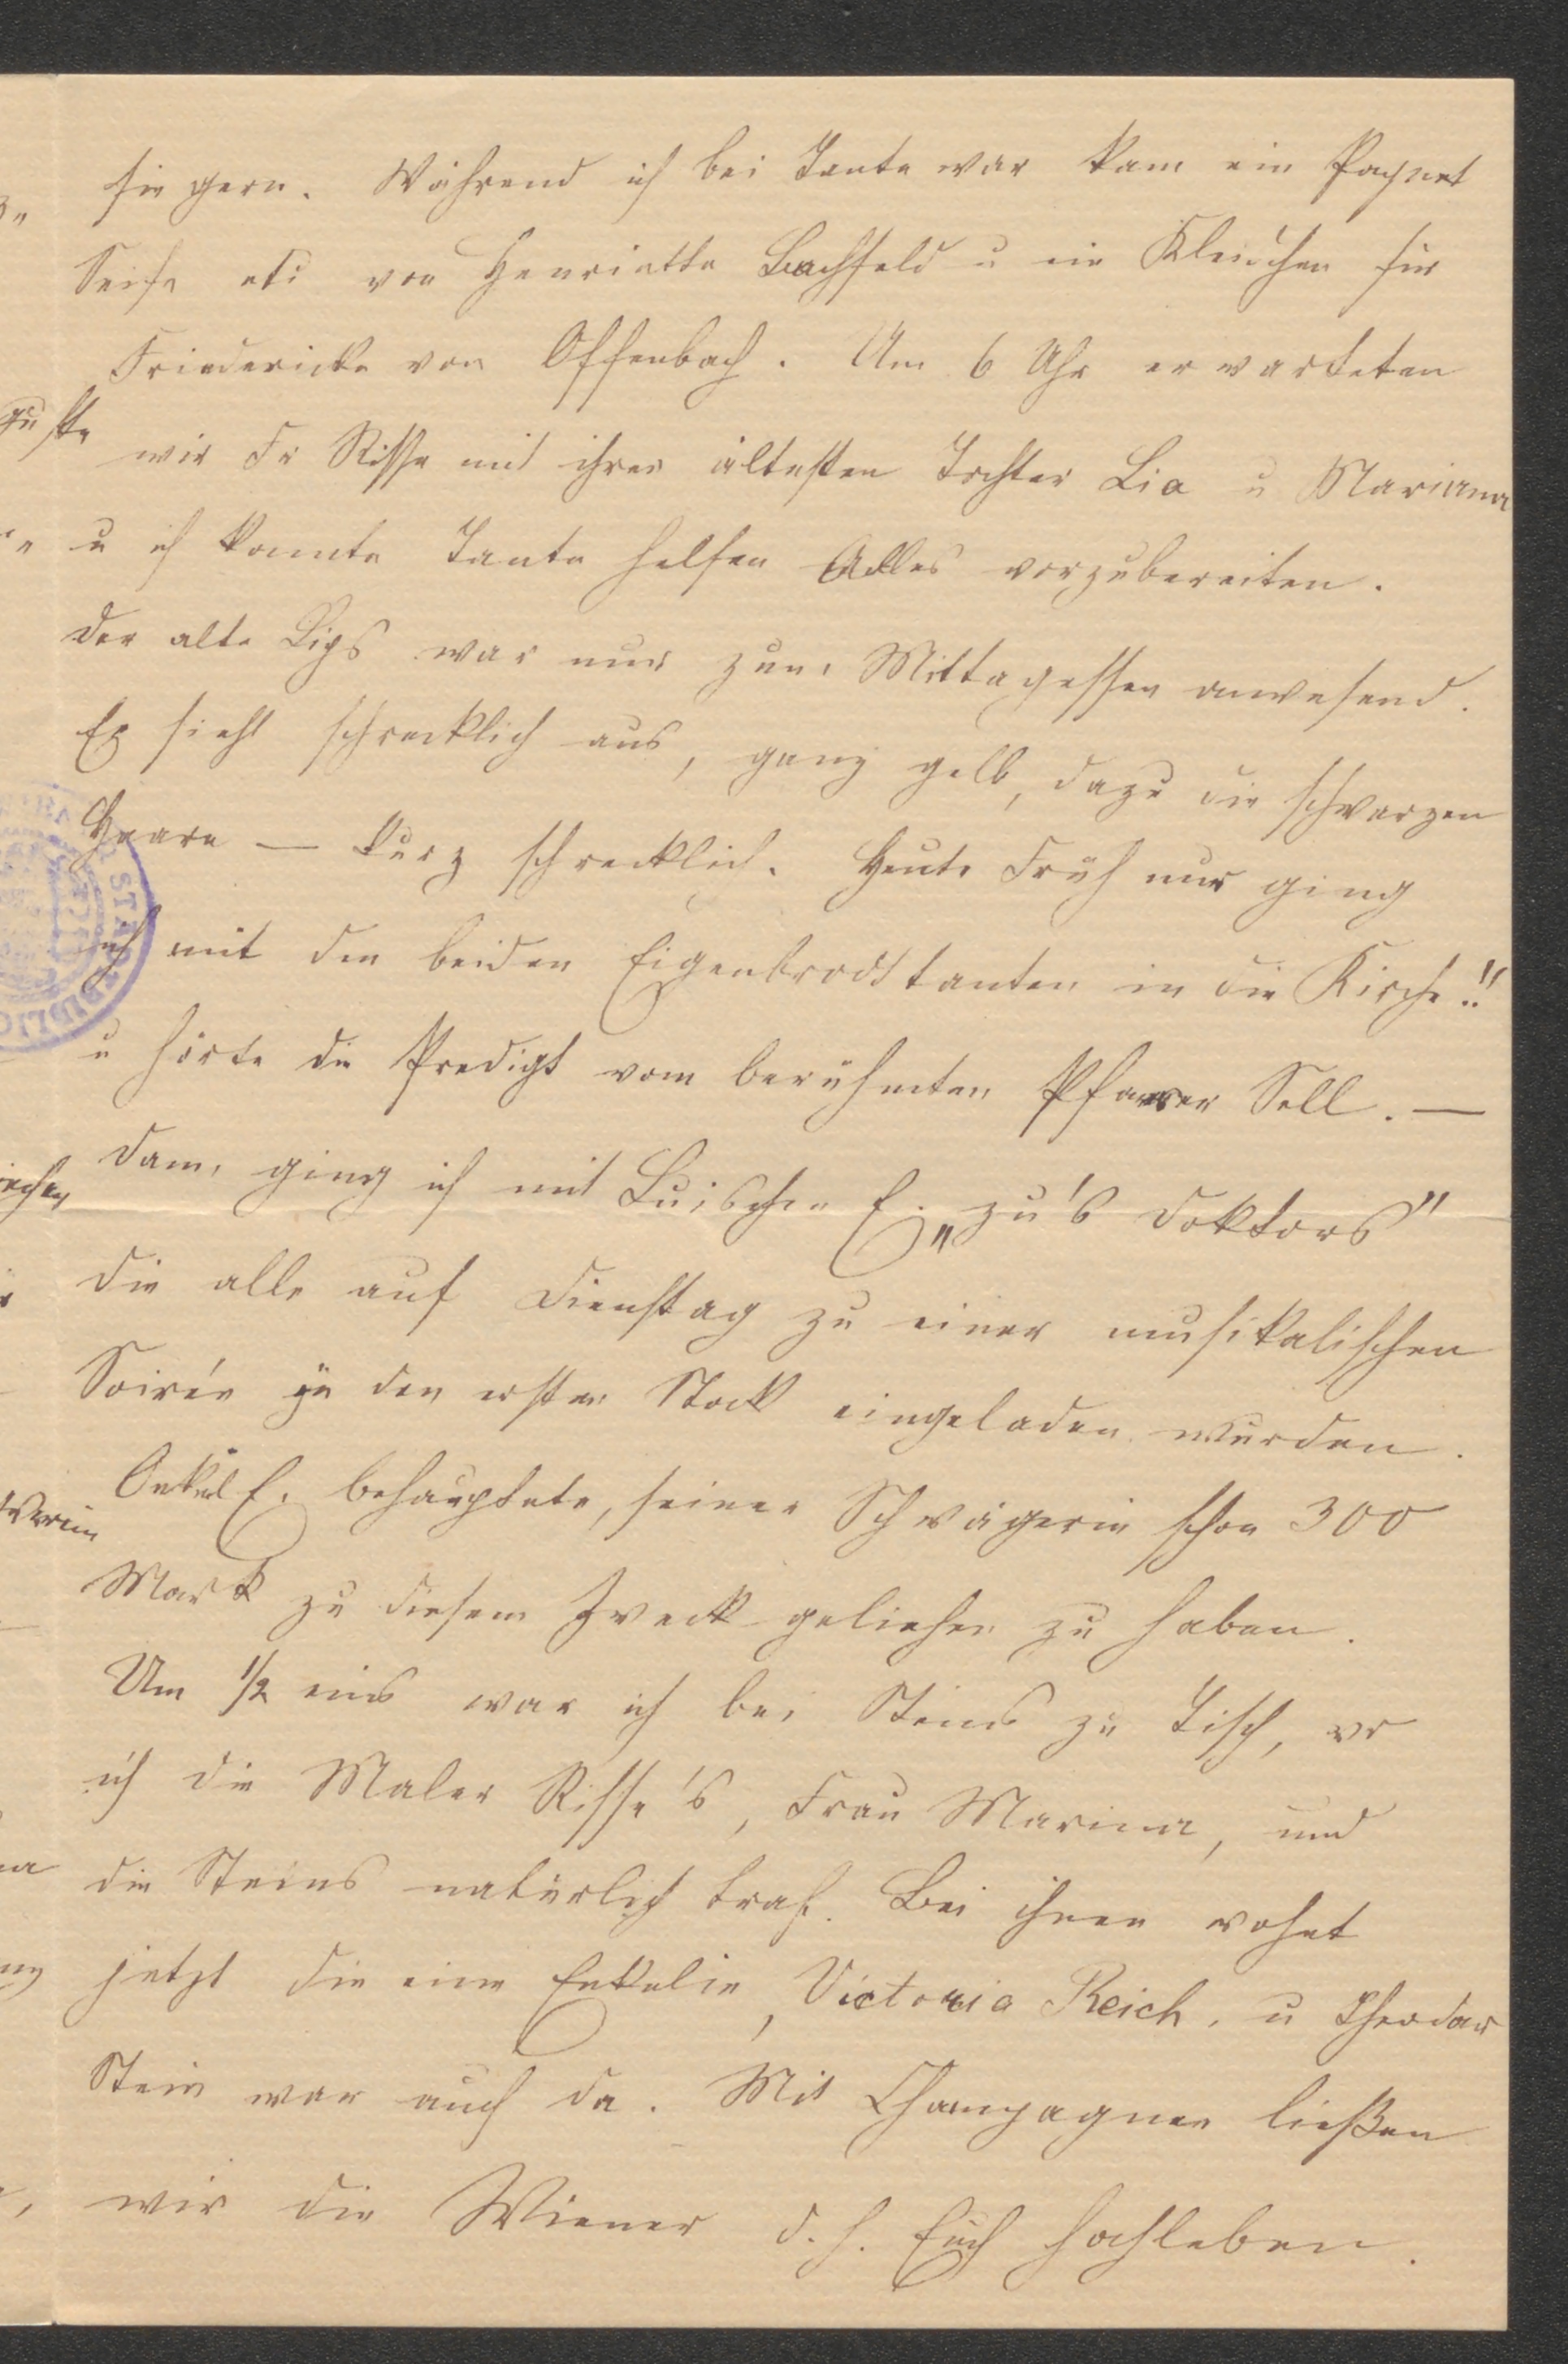 sie gern. Während ich bei Tante war kam ein Paquet
Seife etc von Henriette Bachfeld u ein Kleidchen für
Friedericke von Offenbach. Um 6 Uhr erwarteten
wir Fr Risse mit ihrer ältesten Tochter Lia u Mariana
u ich konnte Tante helfen Alles vorzubereiten.
der alte Lips war nur zum Mittagessen anwesend.
Er sieht schrecklich aus, ganz gelb, dazu die schwarzen
Haare — kurz schrecklich. Heute Früh nun ging
ich mit den beiden Eigenbrodttanten in die Kirche!!
u hörte die Predigt vom berühmten Pfarrer Sell. —
dann ging ich mit Luischen E. „zu's Doktors"
die alle auf Dienstag zu einer musikalischen
Soirée in den ersten Stock eingeladen wurden.
Onkel E. behauptete, seiner Schwägerin schon 300
Mark zu diesem Zweck geliehen zu haben.
Um ½ eins war ich bei Steins zu Tisch, wo
ich die Maler Risse's, Frau Marina, und
die Steins natürlich traf. Bei ihnen wohnt
jetzt die eine Enkelin, Victoria Reich, u Theodor
Stein war auch da. Mit Champagner ließen
wir die Wiener d. h. Euch hochleben.